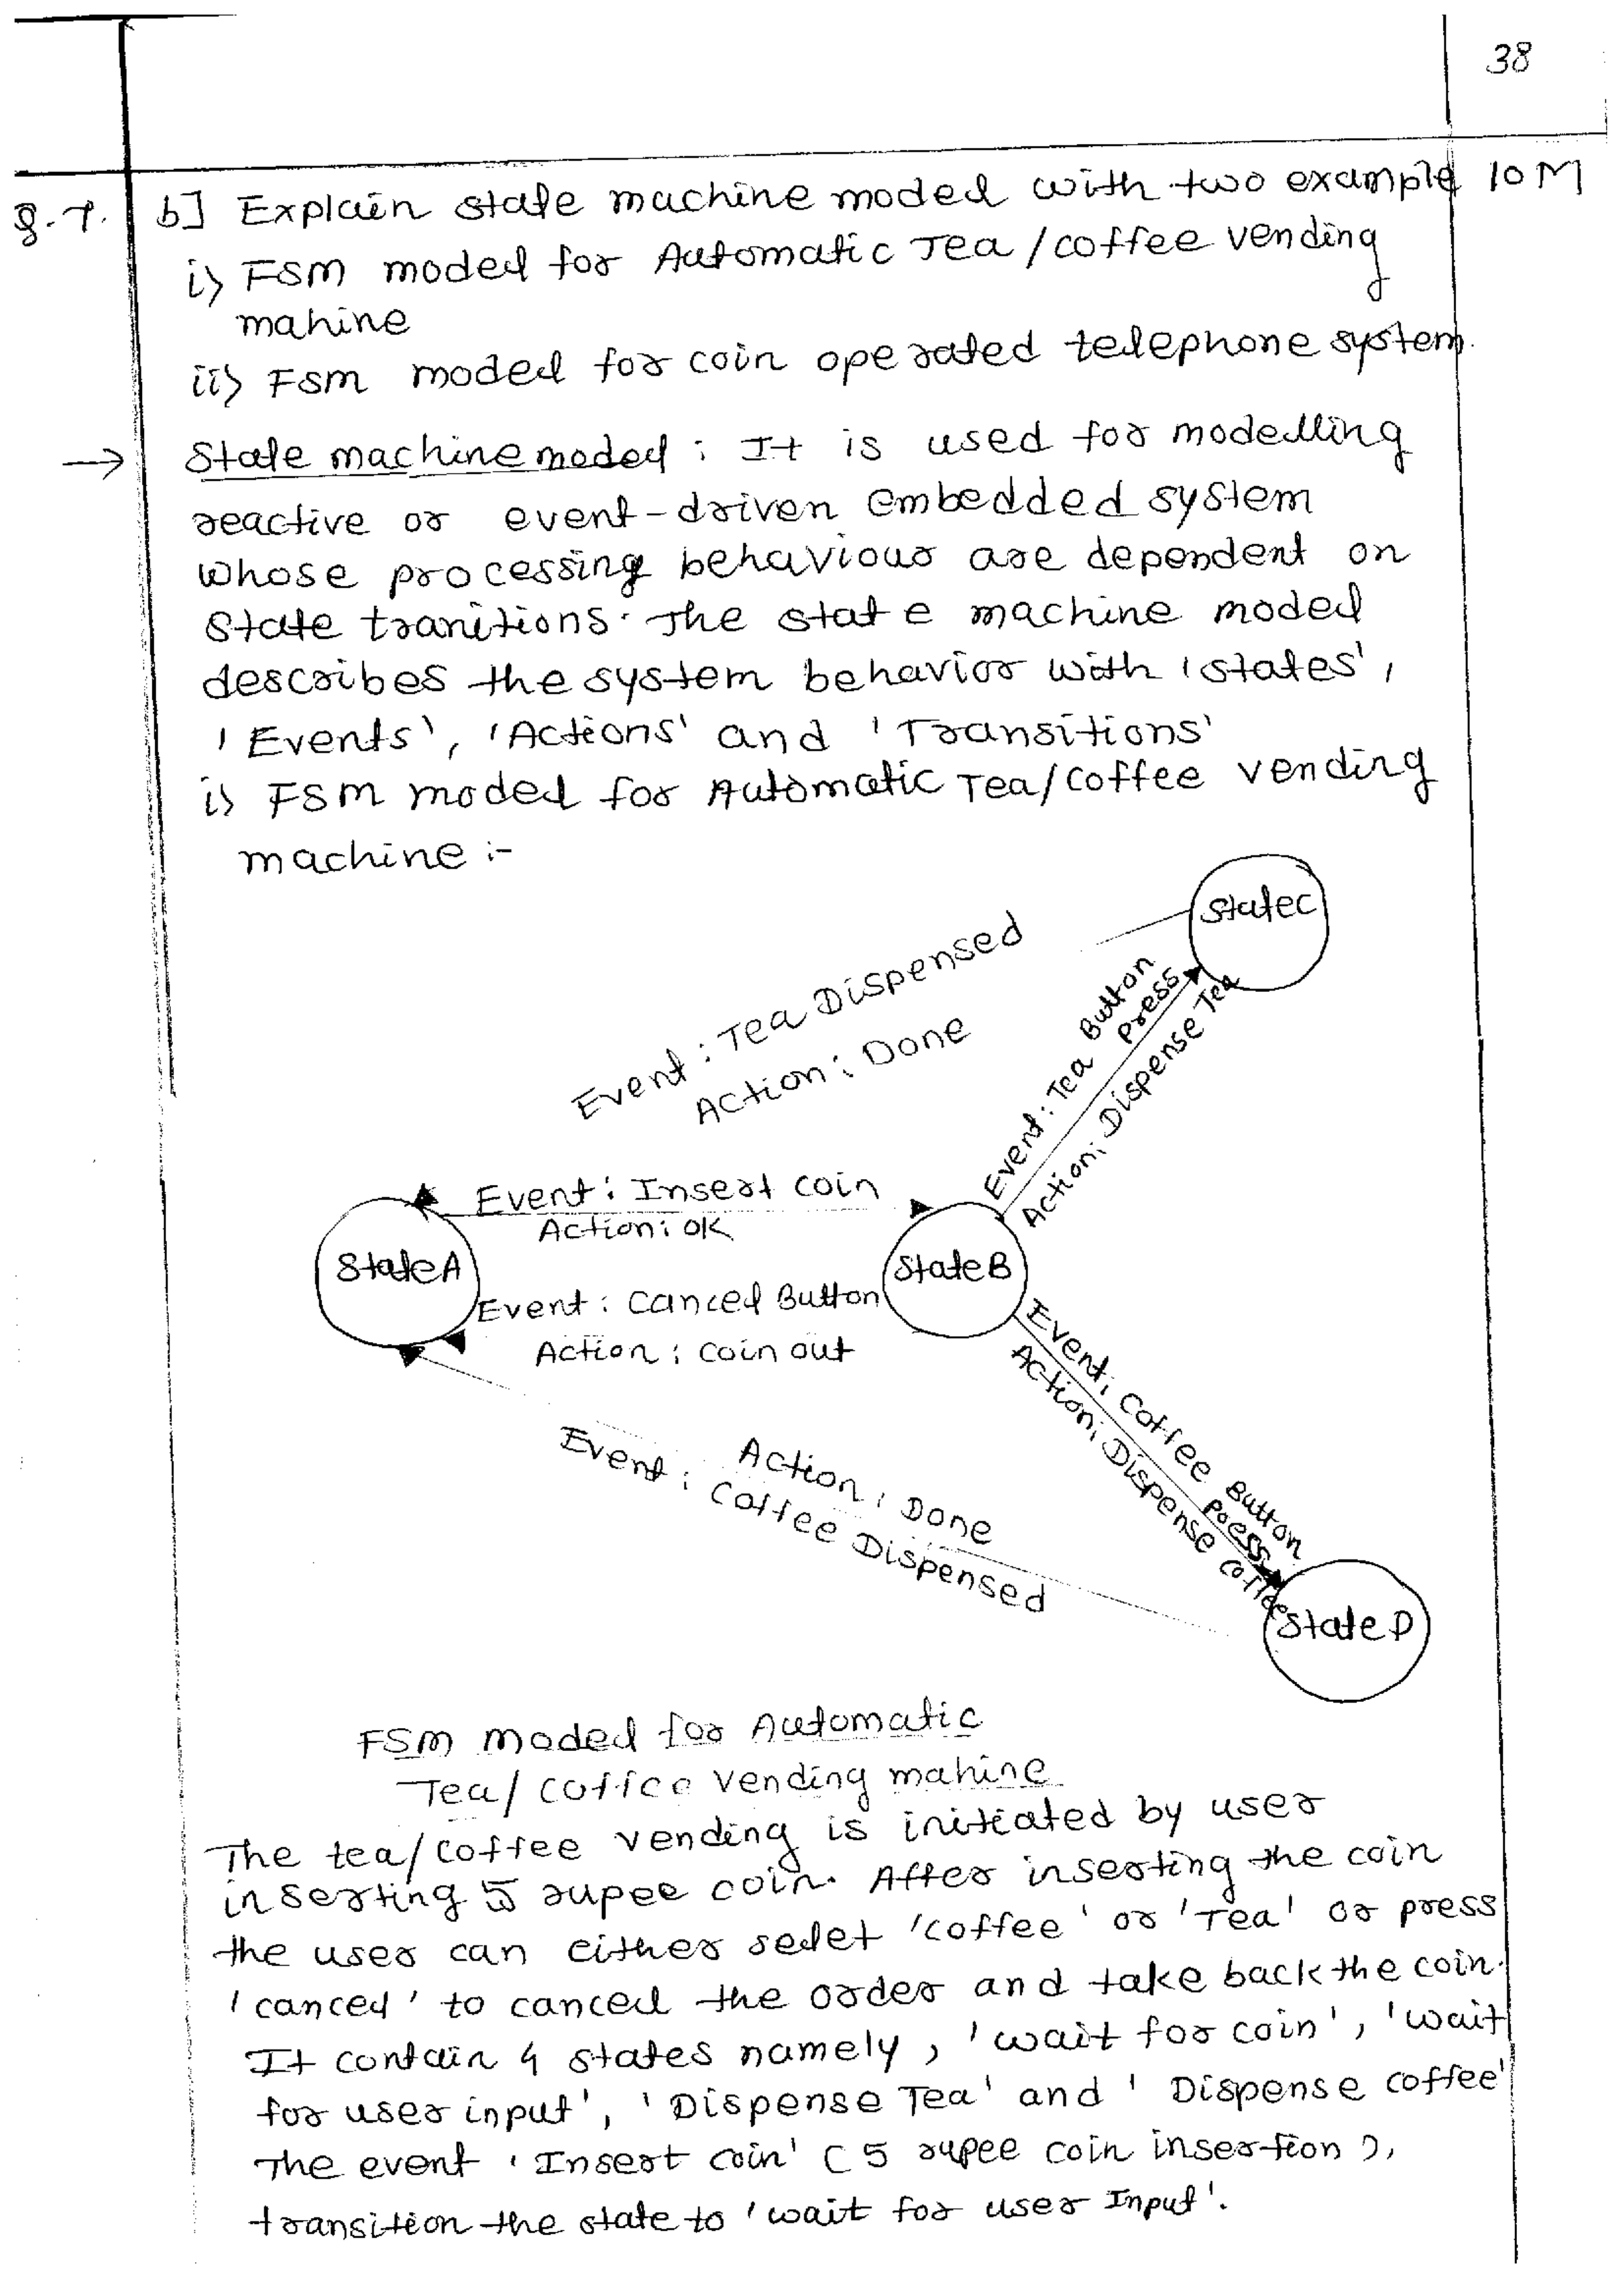 38
8.7. b] Explain state machine model with two example 10M
i) FSM model for Automatic Tea/coffee vending
mahine
ii) FSM model for coin operated telephone system.
→ State machine model : It is used for modelling
reactive or event-driven embedded system
whose processing behaviour are dependent on
state tranitions. The state machine model
describes the system behavior with 'states',
'Events', 'Actions' and 'Transitions'
i) FSM model for Automatic Tea/Coffee vending
machine :-
State C
Event : Tea Dispensed
Action : Done
Event : Tea Button
Press
Action : Dispense Tea
Event : Insert coin
Action : OK
State A
State B
Event : Cancel Button
Action : Coin out
Event : Coffee Button
Press
Action : Dispense Coffee
Action : Done
Event : Coffee Dispensed
State D
FSM model for Automatic
Tea/Coffee vending mahine
The tea/coffee vending is initiated by user
inserting 5 rupee coin. After inserting the coin
the user can either selet 'coffee' or 'Tea' or press
'cancel' to cancel the order and take back the coin.
It contain 4 states namely, 'wait for coin', 'wait
for user input', 'Dispense Tea' and 'Dispense coffee'
The event 'Insert coin' (5 rupee coin insertion),
transition the state to 'wait for user Input'.